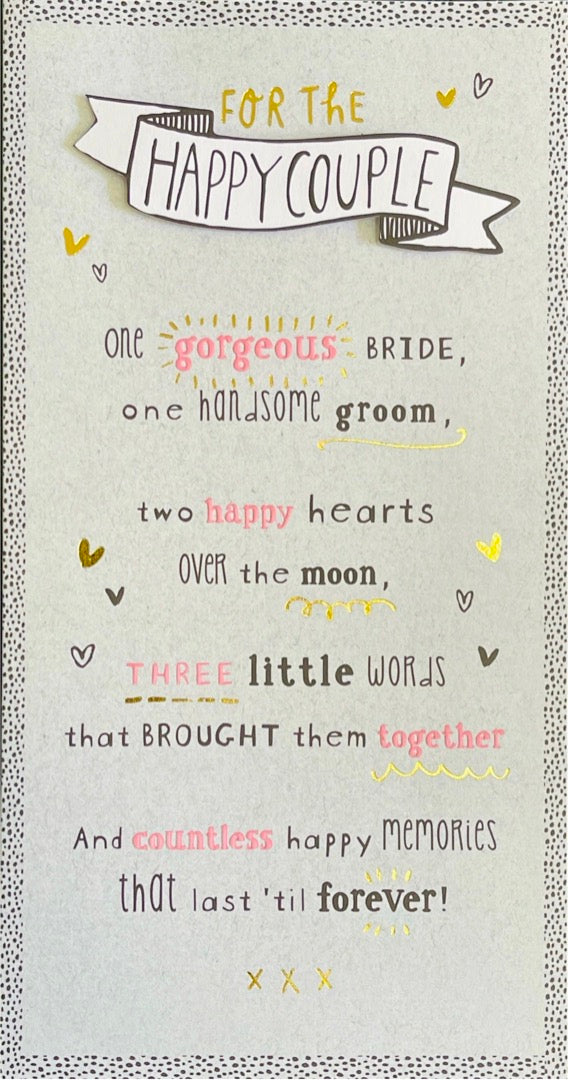 FOR THE
HAPPY COUPLE
one gorgeous BRIDE,
one handsome groom,
two happy hearts
over the moon,
THREE little words
that BROUGHT them together
And countless happy memories
that last 'til forever!
X X X